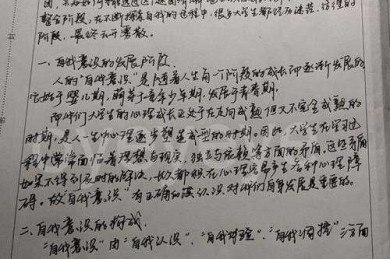 整合阶段，在不断探索自我的过程中，很多大学生都经历迷茫、彷徨的
阶段，最终
一、自我意识的发展阶段
人的"自我意识"是随着人生每一个阶段的成长而逐渐发展的
它始于婴儿期，萌芽于童年少年期，发展于青春期
而我们大学生的心理成长正处于在走向成熟但又不完全成熟的
时期，是人一生中心理逐步塑造成型的时期。因此，大学生在学习过
程中常常面临着理想与现实，独立与依赖等方面的矛盾，这些矛盾
如果不得到及时的解决，都积在心理 产生各种心理障
碍，故"自我意识"有正确的认识对我们自身发展是重要的。
二、自我意识的构成
"自我意识"由"自我认识"、"自我体验"、"自我调控"三方面